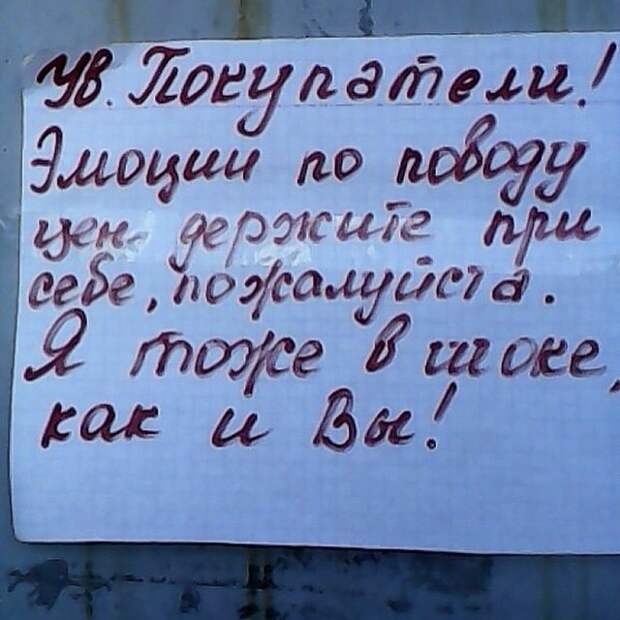 Ув. Покупатели!
Эмоции по поводу
цен держите при
себе, пожалуйста.
Я тоже в шоке,
как и Вы!